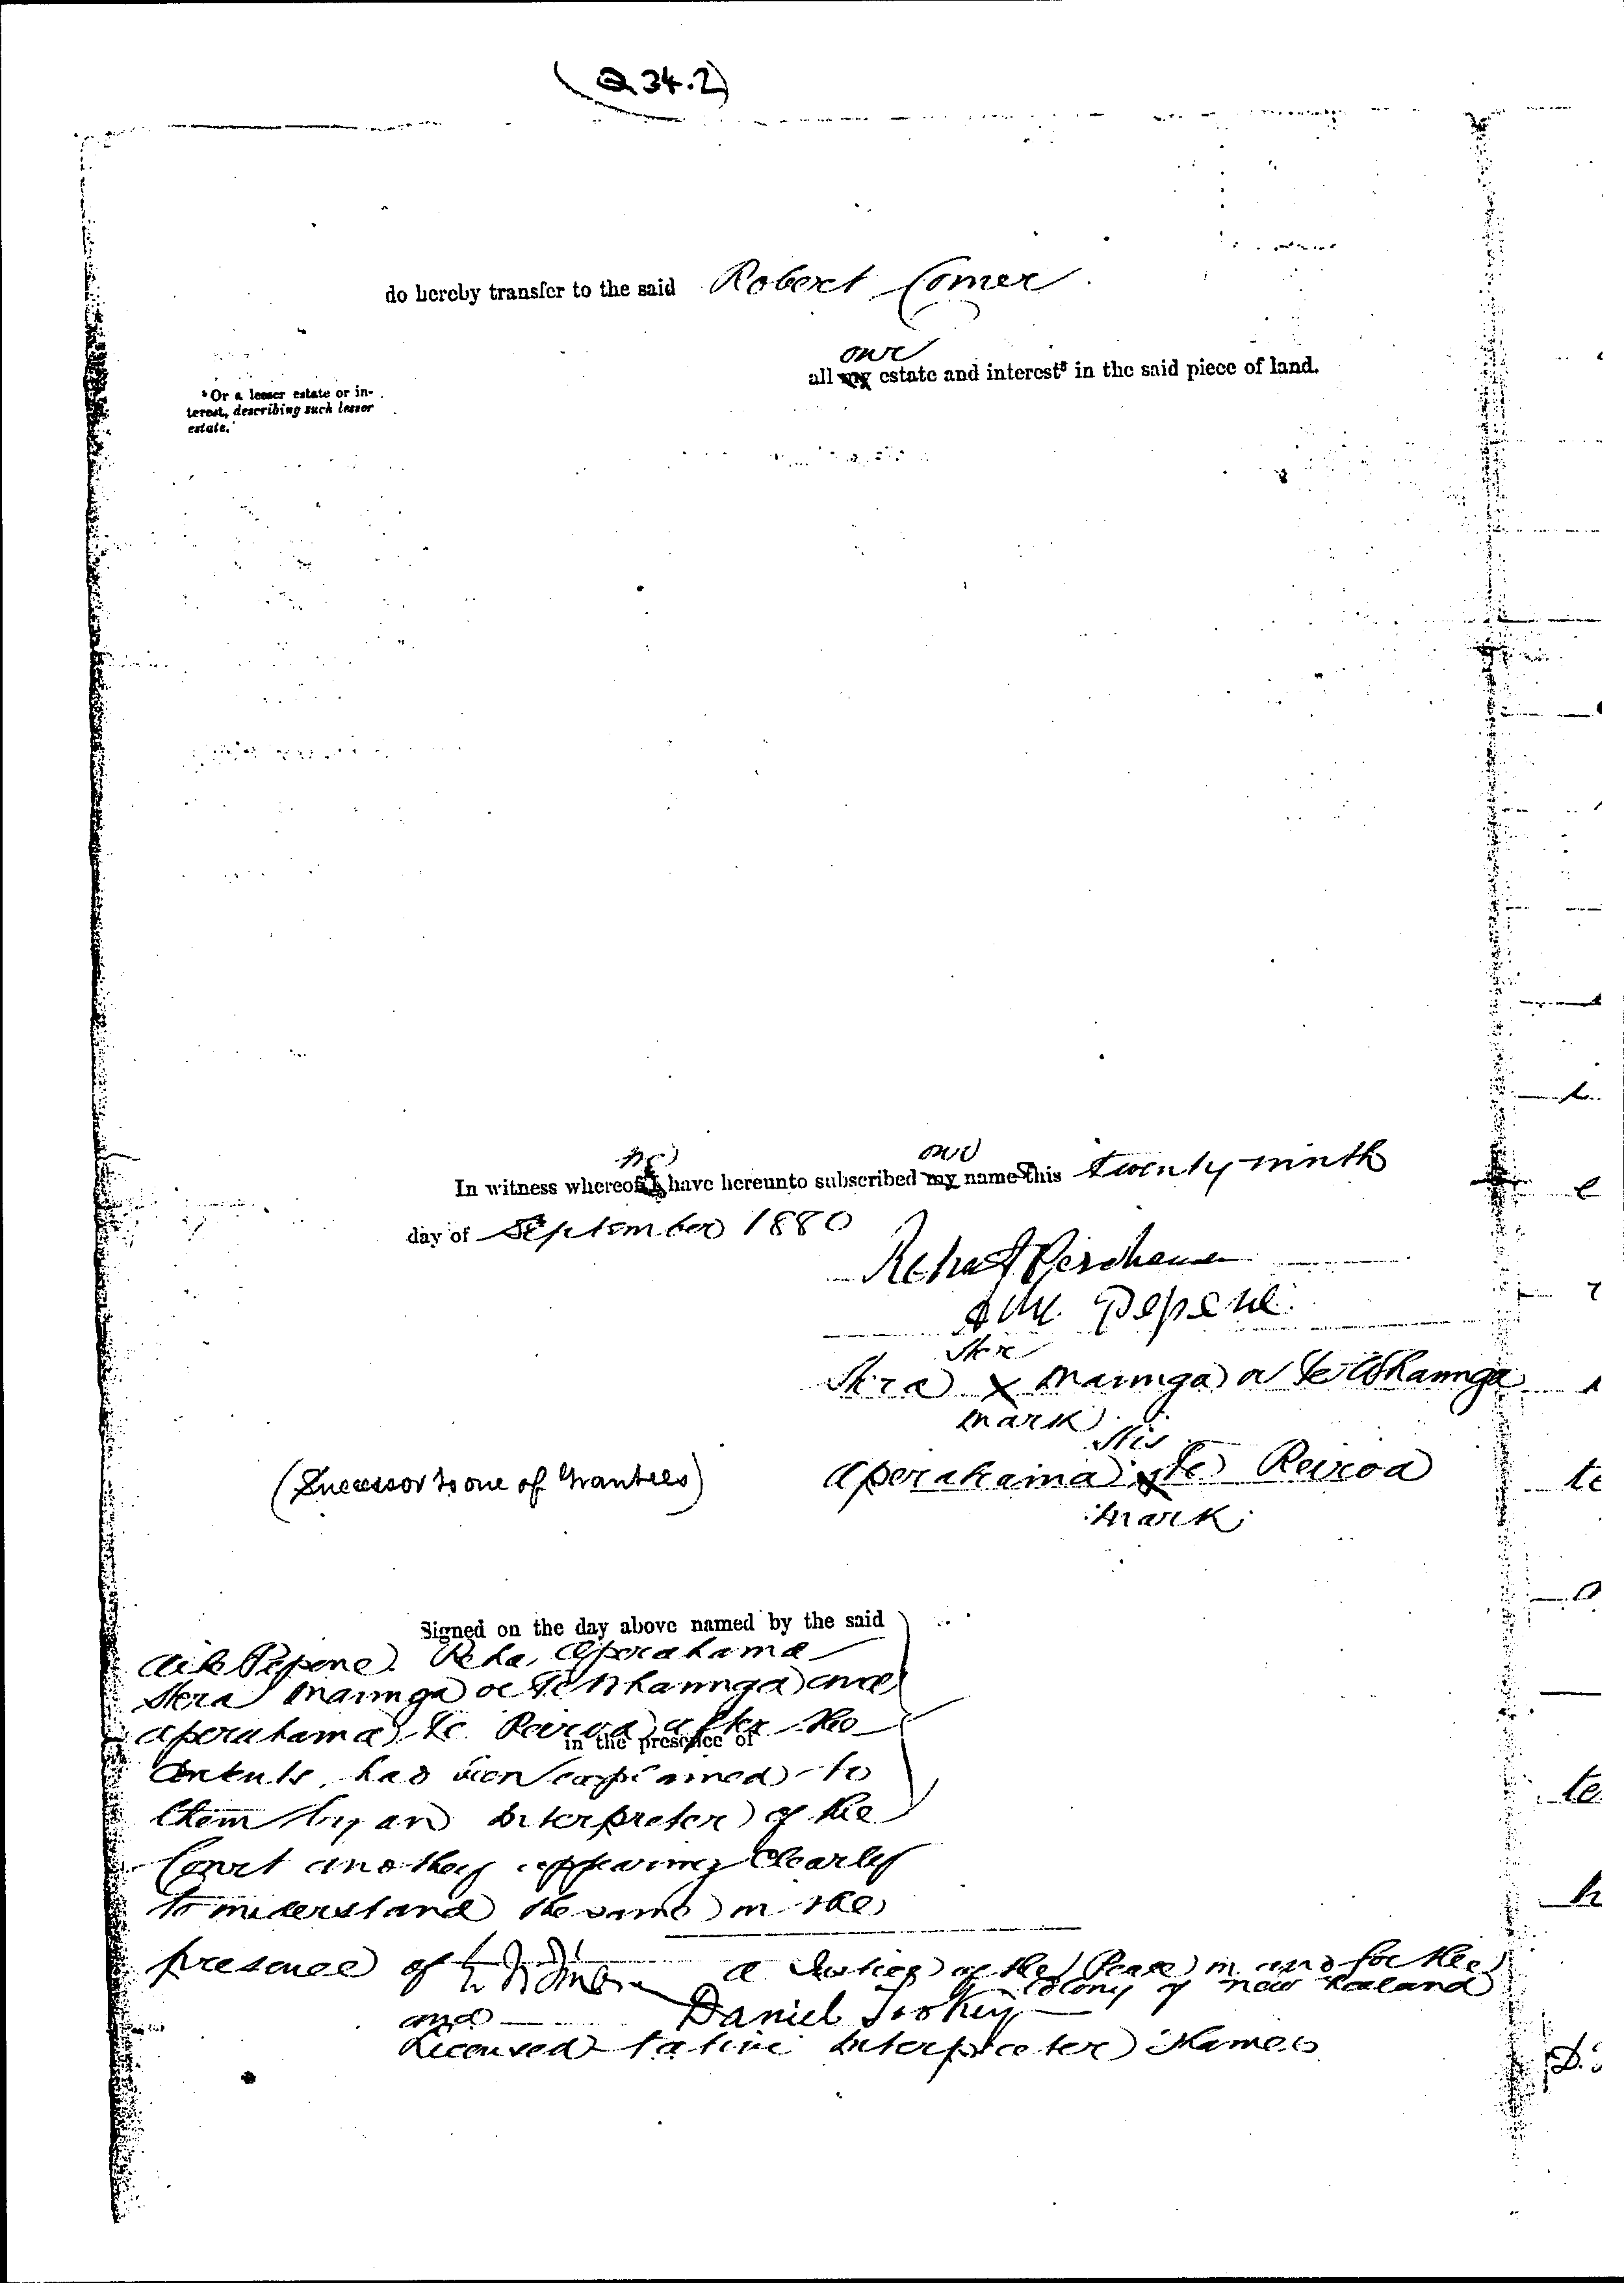 (Q 34.2)
do hereby transfer to the said Robert Comer
our
all my estate and interest⁸ in the said piece of land.
⁸Or a lesser estate or in-
terest, describing such lesser
estate.
we our
In witness whereof I have hereunto subscribed my names this twenty ninth
day of September 1880
Reha
Pepene
Her
Hera X Maunga or Te Whaunga
mark
His
(Successor to one of Grantees) Aperahama X Te Reiroa
mark
Signed on the day above named by the said
Pepene Reha, Aperahama
Hera Maunga or Te Whaunga and
Aperahama Te Reiroa after the
in the presence of
contents had been explained to
them by an Interpreter of the
Court and they appearing clearly
to understand the same in the
presence of a Justice of the Peace in and for the
Colony of New Zealand
and Daniel Tookey
Licensed Native Interpreter Thames